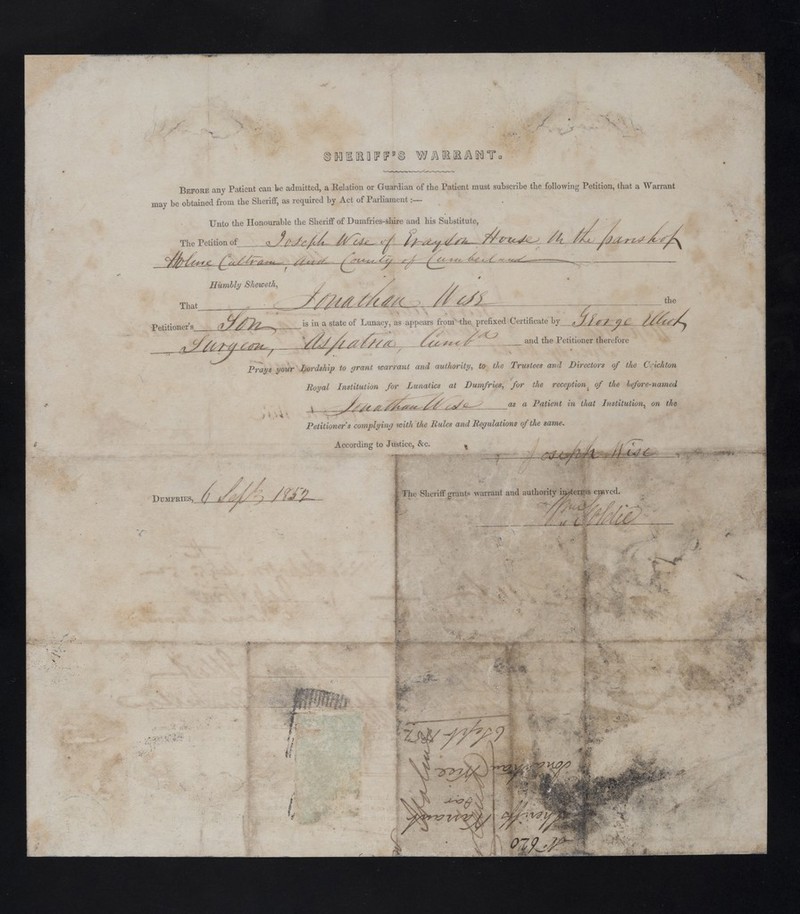 SHERIFF'S WARRANT.
BEFORE any Patient can be admitted, a Relation or Guardian of the Patient must subscribe the following Petition, that a Warrant
may be obtained from the Sheriff, as required by Act of Parliament :—
Unto the Honourable the Sheriff of Dumfries-shire and his Substitute,
The Petition of Joseph Wise of House, In the parish of
Holme Cultram, and County of Cumberland
Humbly Sheweth,
That Jonathan Wise the
Petitioner's Son is in a state of Lunacy, as appears from the prefixed Certificate by George
Surgeon, Aspatria, Cumbd and the Petitioner therefore
Prays your Lordship to grant warrant and authority, to the Trustees and Directors of the Crichton
Royal Institution for Lunatics at Dumfries, for the reception of the before-named
Jonathan Wise as a Patient in that Institution, on the
Petitioner's complying with the Rules and Regulations of the same.
According to Justice, &c.
Joseph Wise
DUMFRIES, 6 Sept. 1852
The Sheriff grants warrant and authority in terms craved.
Wm Goldie
No 620
Sheriff's Warrant
for
Jonathan Wise
6 Sept 1852